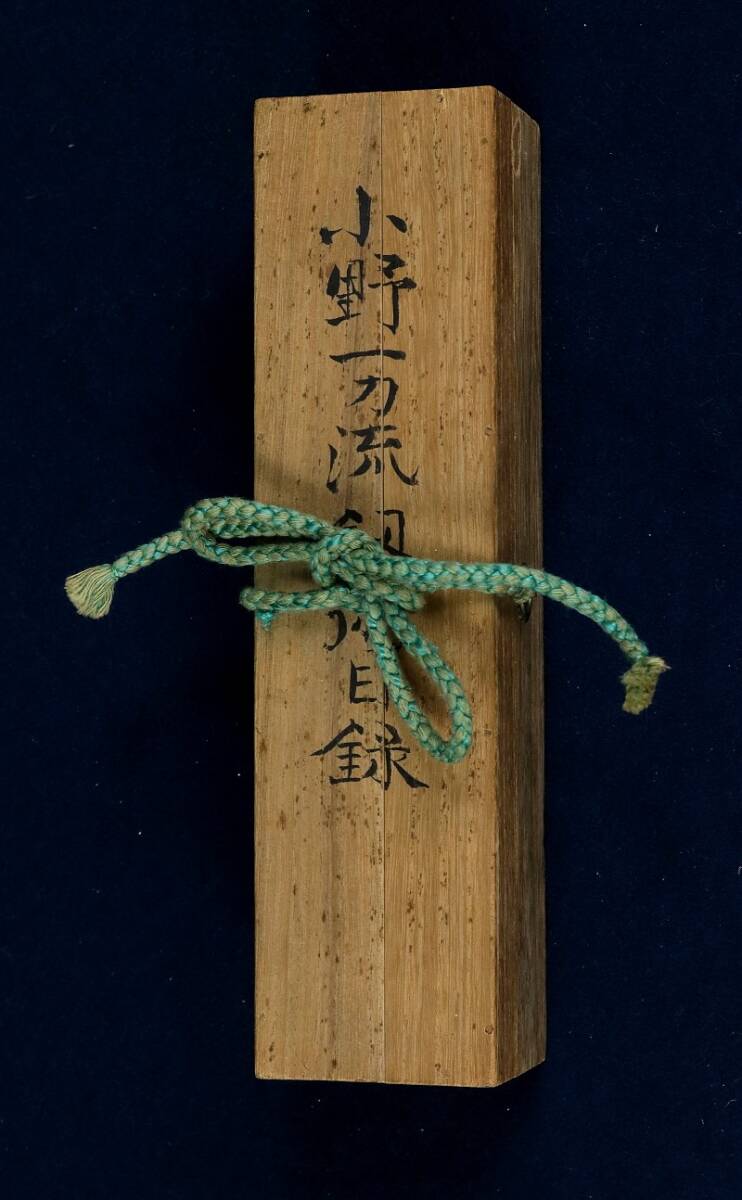 小野一刀流 目録